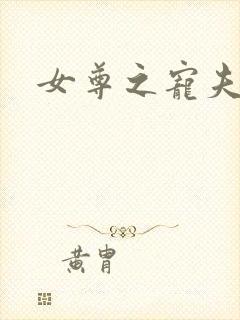 女尊之寵夫
黃胄